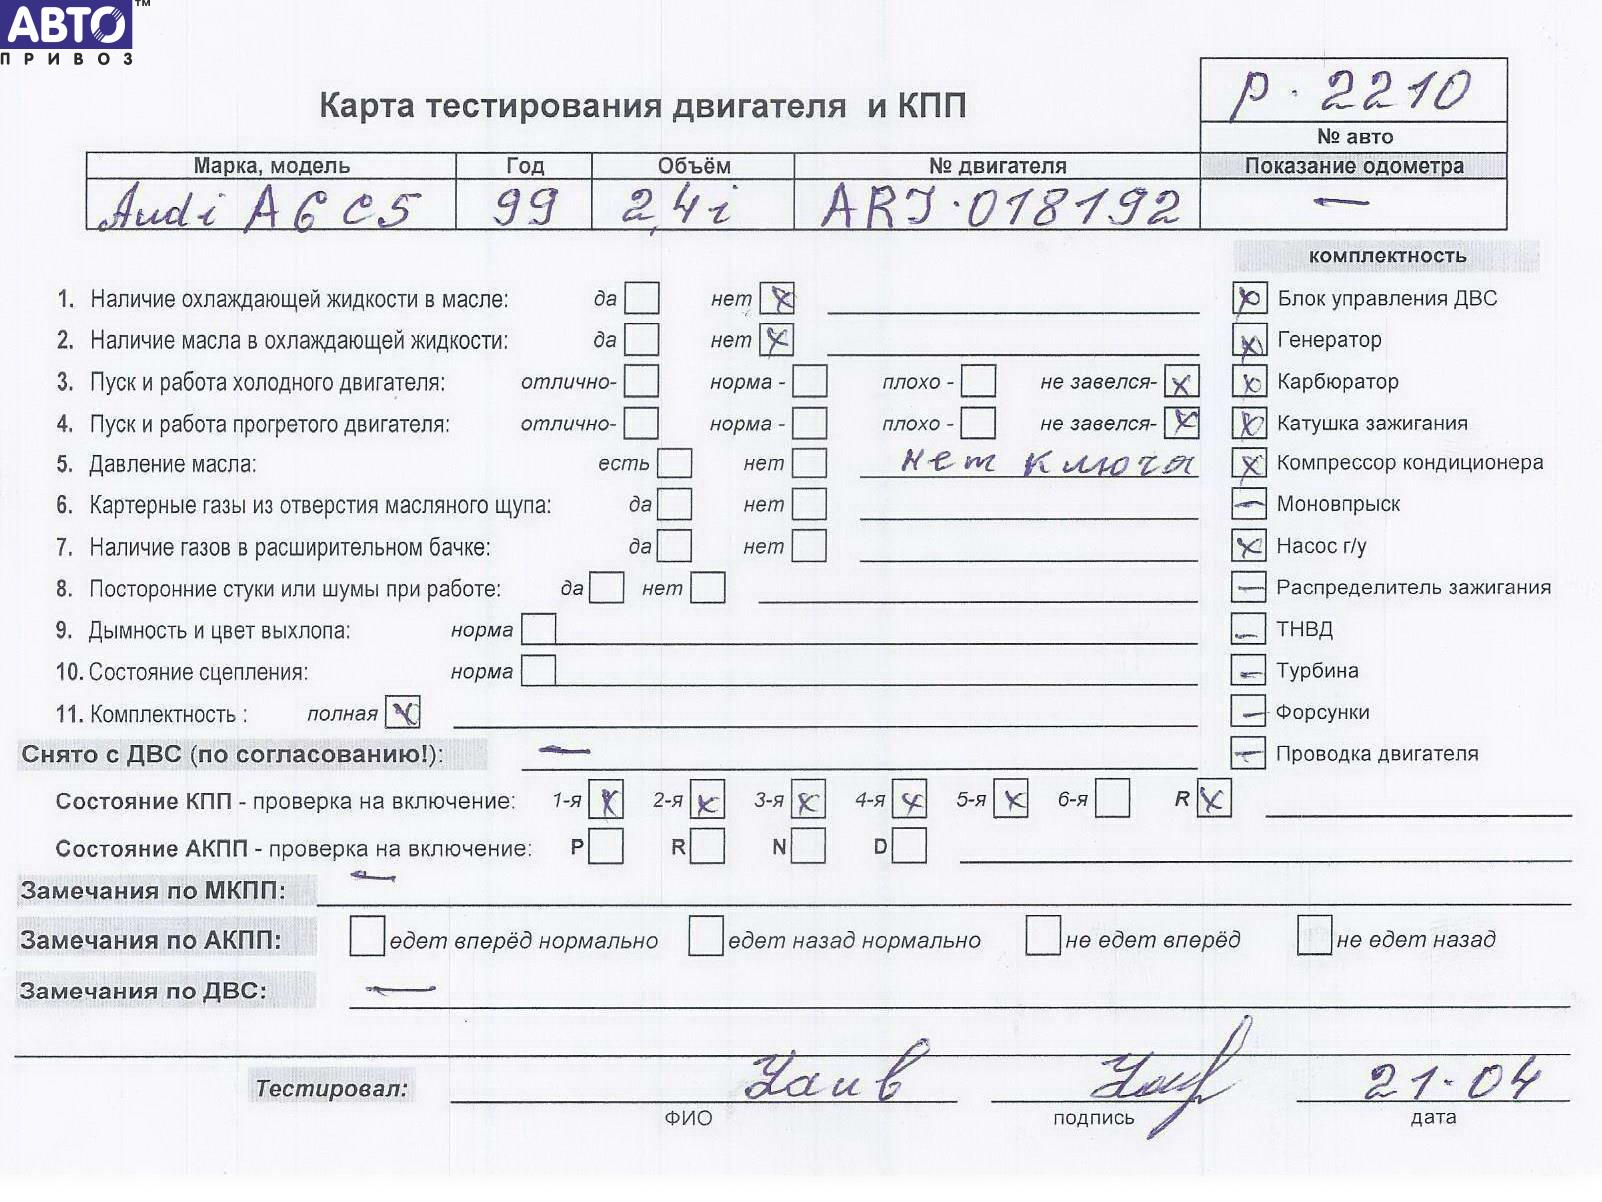 АВТО™
ПРИВОЗ
Р·2210
Карта тестирования двигателя и КПП
№ авто
Марка, модель Год Объём № двигателя Показание одометра
Audi A6 C5 99 2,4i ARJ·018192 —
комплектность
1. Наличие охлаждающей жидкости в масле: да нет x
x Блок управления ДВС
2. Наличие масла в охлаждающей жидкости: да нет x
x Генератор
3. Пуск и работа холодного двигателя: отлично- норма - плохо - не завелся- x
x Карбюратор
4. Пуск и работа прогретого двигателя: отлично- норма - плохо - не завелся- x
x Катушка зажигания
5. Давление масла: есть нет нет ключа
x Компрессор кондиционера
6. Картерные газы из отверстия масляного щупа: да нет
— Моновпрыск
7. Наличие газов в расширительном бачке: да нет
x Насос г/у
8. Посторонние стуки или шумы при работе: да нет
— Распределитель зажигания
9. Дымность и цвет выхлопа: норма
— ТНВД
10. Состояние сцепления: норма
— Турбина
11. Комплектность : полная x
— Форсунки
Снято с ДВС (по согласованию!): —
— Проводка двигателя
Состояние КПП - проверка на включение: 1-я x 2-я x 3-я x 4-я x 5-я x 6-я R x
Состояние АКПП - проверка на включение: P R N D
Замечания по МКПП: —
Замечания по АКПП: едет вперёд нормально едет назад нормально не едет вперёд не едет назад
Замечания по ДВС: —
Тестировал: 21·04
ФИО подпись дата